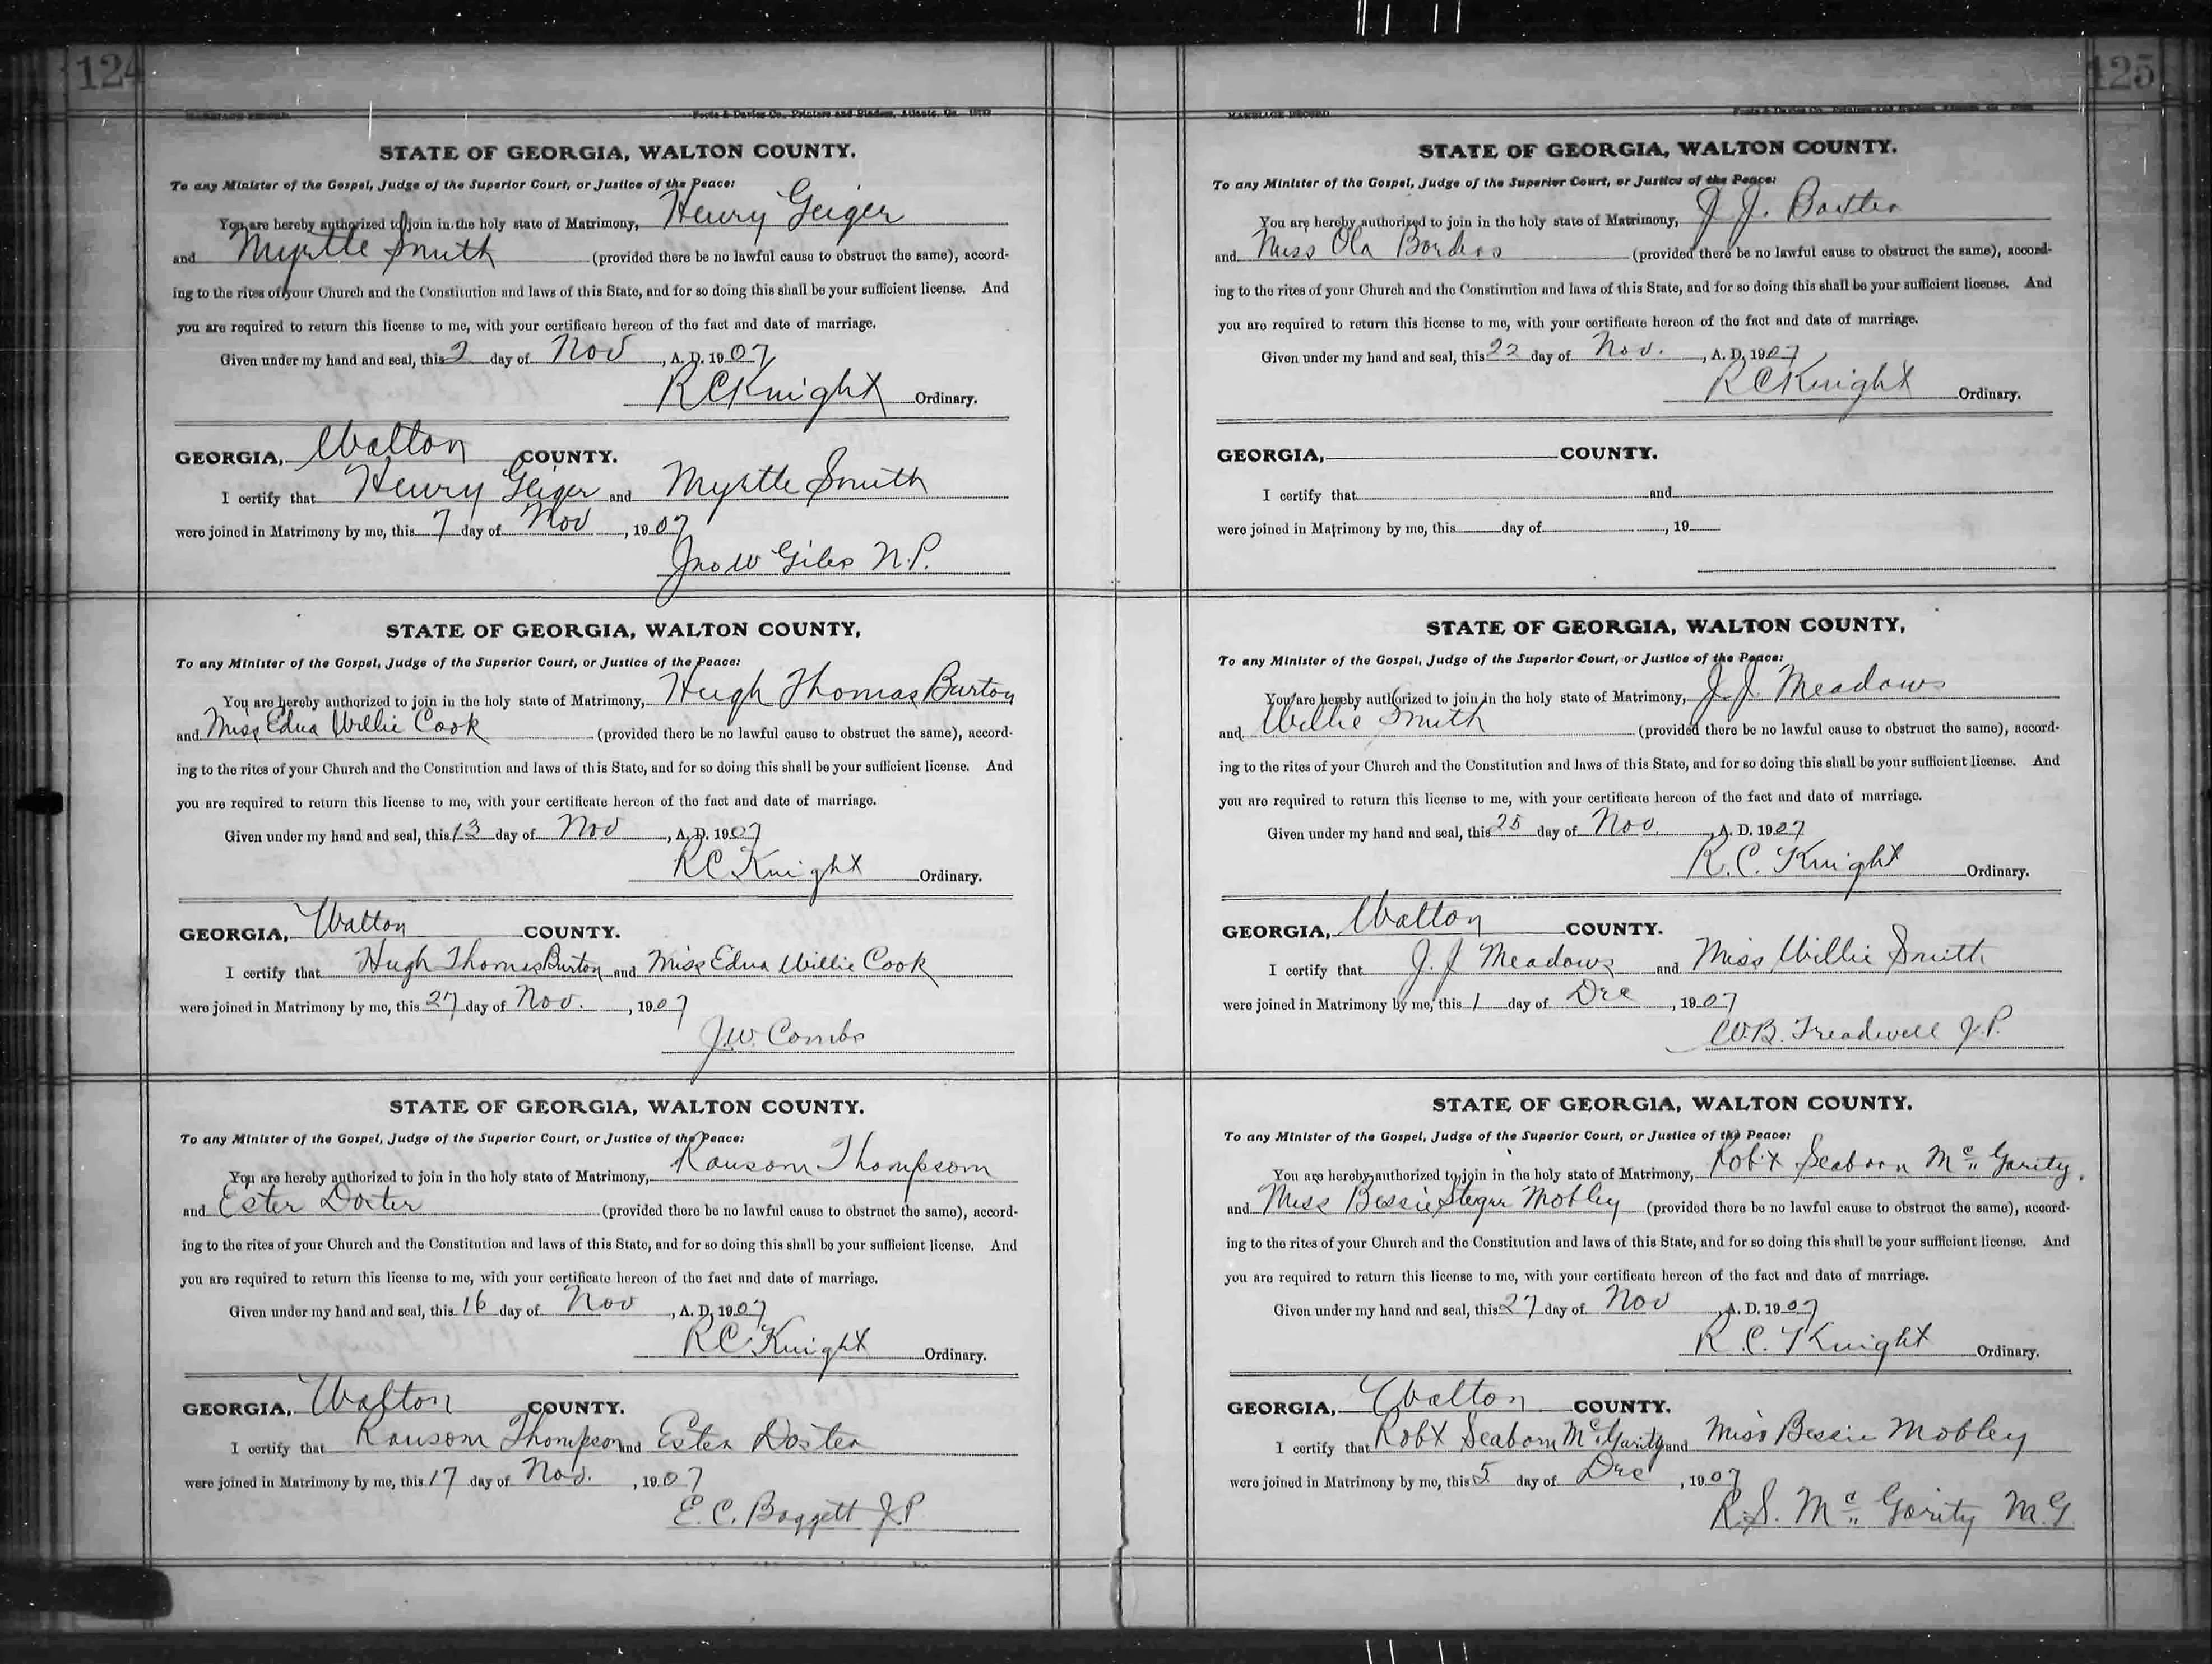 124
Foote & Davies Co., Printers and Binders, Atlanta, Ga.
STATE OF GEORGIA, WALTON COUNTY.
To any Minister of the Gospel, Judge of the Superior Court, or Justice of the Peace:
You are hereby authorized to join in the holy state of Matrimony, Henry Geiger
and Myrtle Smith (provided there be no lawful cause to obstruct the same), accord-
ing to the rites of your Church and the Constitution and laws of this State, and for so doing this shall be your sufficient license. And
you are required to return this license to me, with your certificate hereon of the fact and date of marriage.
Given under my hand and seal, this 2 day of Nov, A. D. 1907
R C Knight Ordinary.
GEORGIA, Walton COUNTY.
I certify that Henry Geiger and Myrtle Smith
were joined in Matrimony by me, this 7 day of Nov, 1907
Jno W Giles N.P.
STATE OF GEORGIA, WALTON COUNTY,
To any Minister of the Gospel, Judge of the Superior Court, or Justice of the Peace:
You are hereby authorized to join in the holy state of Matrimony, Hugh Thomas Burton
and Miss Edna Willie Cook (provided there be no lawful cause to obstruct the same), accord-
ing to the rites of your Church and the Constitution and laws of this State, and for so doing this shall be your sufficient license. And
you are required to return this license to me, with your certificate hereon of the fact and date of marriage.
Given under my hand and seal, this 13 day of Nov, A. D. 1907
R C Knight Ordinary.
GEORGIA, Walton COUNTY.
I certify that Hugh Thomas Burton and Miss Edna Willie Cook
were joined in Matrimony by me, this 27 day of Nov., 1907
J.W. Combs
STATE OF GEORGIA, WALTON COUNTY.
To any Minister of the Gospel, Judge of the Superior Court, or Justice of the Peace:
You are hereby authorized to join in the holy state of Matrimony, Ransom Thompson
and Ester Doster (provided there be no lawful cause to obstruct the same), accord-
ing to the rites of your Church and the Constitution and laws of this State, and for so doing this shall be your sufficient license. And
you are required to return this license to me, with your certificate hereon of the fact and date of marriage.
Given under my hand and seal, this 16 day of Nov, A. D. 1907
R C Knight Ordinary.
GEORGIA, Walton COUNTY.
I certify that Ransom Thompson and Ester Doster
were joined in Matrimony by me, this 17 day of Nov., 1907
E. C. Baggett J P
125
MARRIAGE RECORD
STATE OF GEORGIA, WALTON COUNTY.
To any Minister of the Gospel, Judge of the Superior Court, or Justice of the Peace:
You are hereby authorized to join in the holy state of Matrimony, J. J. Baxter
and Miss Ola Borders (provided there be no lawful cause to obstruct the same), accord-
ing to the rites of your Church and the Constitution and laws of this State, and for so doing this shall be your sufficient license. And
you are required to return this license to me, with your certificate hereon of the fact and date of marriage.
Given under my hand and seal, this 22 day of Nov., A. D. 1907
R C Knight Ordinary.
GEORGIA, COUNTY.
I certify that and
were joined in Matrimony by me, this day of , 19
STATE OF GEORGIA, WALTON COUNTY,
To any Minister of the Gospel, Judge of the Superior Court, or Justice of the Peace:
You are hereby authorized to join in the holy state of Matrimony, J. J. Meadows
and Willie Smith (provided there be no lawful cause to obstruct the same), accord-
ing to the rites of your Church and the Constitution and laws of this State, and for so doing this shall be your sufficient license. And
you are required to return this license to me, with your certificate hereon of the fact and date of marriage.
Given under my hand and seal, this 25 day of Nov., A. D. 1907
R. C. Knight Ordinary.
GEORGIA, Walton COUNTY.
I certify that J. J Meadows and Miss Willie Smith
were joined in Matrimony by me, this 1 day of Dec, 1907
W.B. Treadwell J.P.
STATE OF GEORGIA, WALTON COUNTY.
To any Minister of the Gospel, Judge of the Superior Court, or Justice of the Peace:
You are hereby authorized to join in the holy state of Matrimony, Robt Seaborn Mc Garity.
and Miss Bessie Steger Mobley (provided there be no lawful cause to obstruct the same), accord-
ing to the rites of your Church and the Constitution and laws of this State, and for so doing this shall be your sufficient license. And
you are required to return this license to me, with your certificate hereon of the fact and date of marriage.
Given under my hand and seal, this 27 day of Nov, A. D. 1907
R. C. Knight Ordinary.
GEORGIA, Walton COUNTY.
I certify that Robt Seaborn Mc Garity and Miss Bessie Mobley
were joined in Matrimony by me, this 5 day of Dec, 1907
R. S. Mc Garity M. G